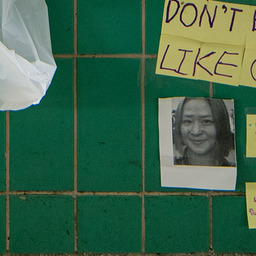 DON'T
LIKE